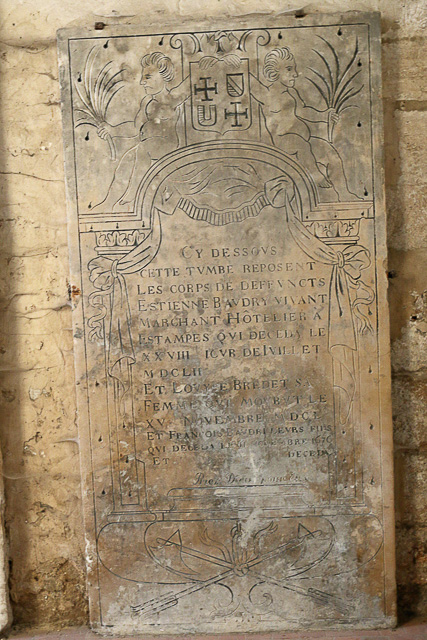 CY DESSOVS
CETTE TVMBE REPOSENT
LES CORPS DE DEFFVNCTS
ESTIENNE BAVDRY VIVANT
MARCHANT HÔTELIER A
ESTAMPES QUI DECEDA LE
XXVIII IOVR DE IVILLET
MDCLII
ET LOVYSE BREDET SA
FEMME QUI MOURUT LE
NOVEMBRE
ET FRANCOIS LEURS FILS
QUI DECEDA
ET DECEDA
Priez Dieu pour eux